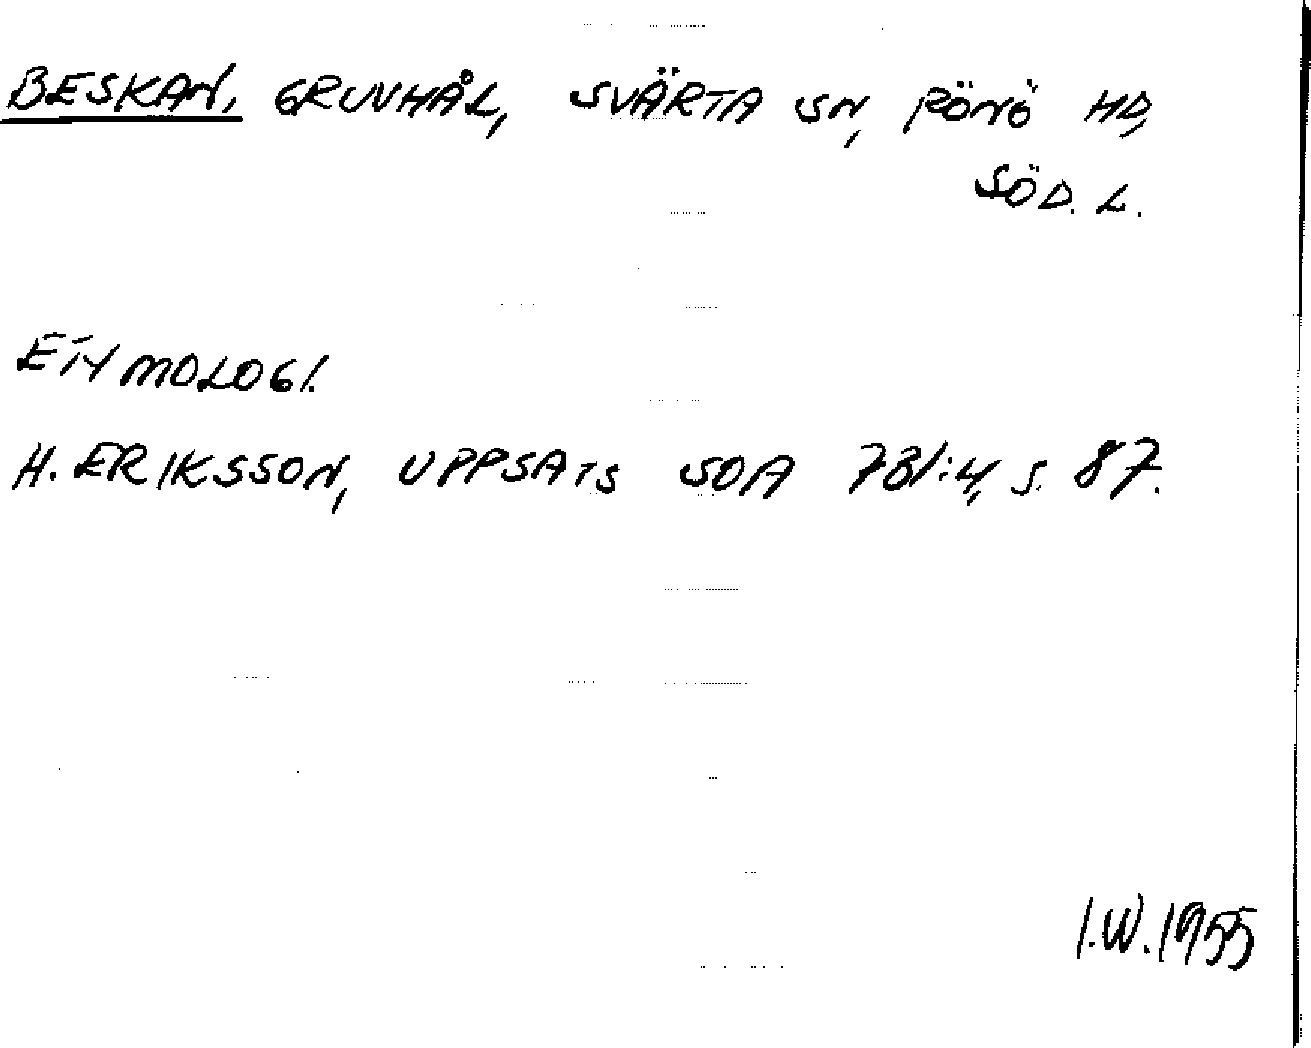 BESKAN, GRUVHÅL, SVÄRTA SN, RÖNÖ HD,
SÖD. L.
ETYMOLOGI.
H. ERIKSSON, UPPSATS SOA 731:4, S. 87.
I.W. 1955